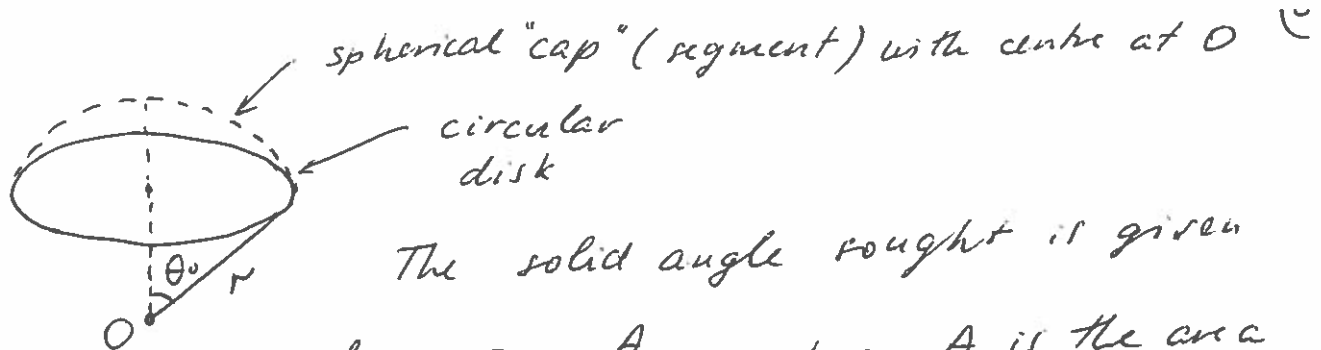 spherical "cap" (segment) with centre at O
circular
disk
The solid angle sought is given
θ₀
r
O
A A is the area